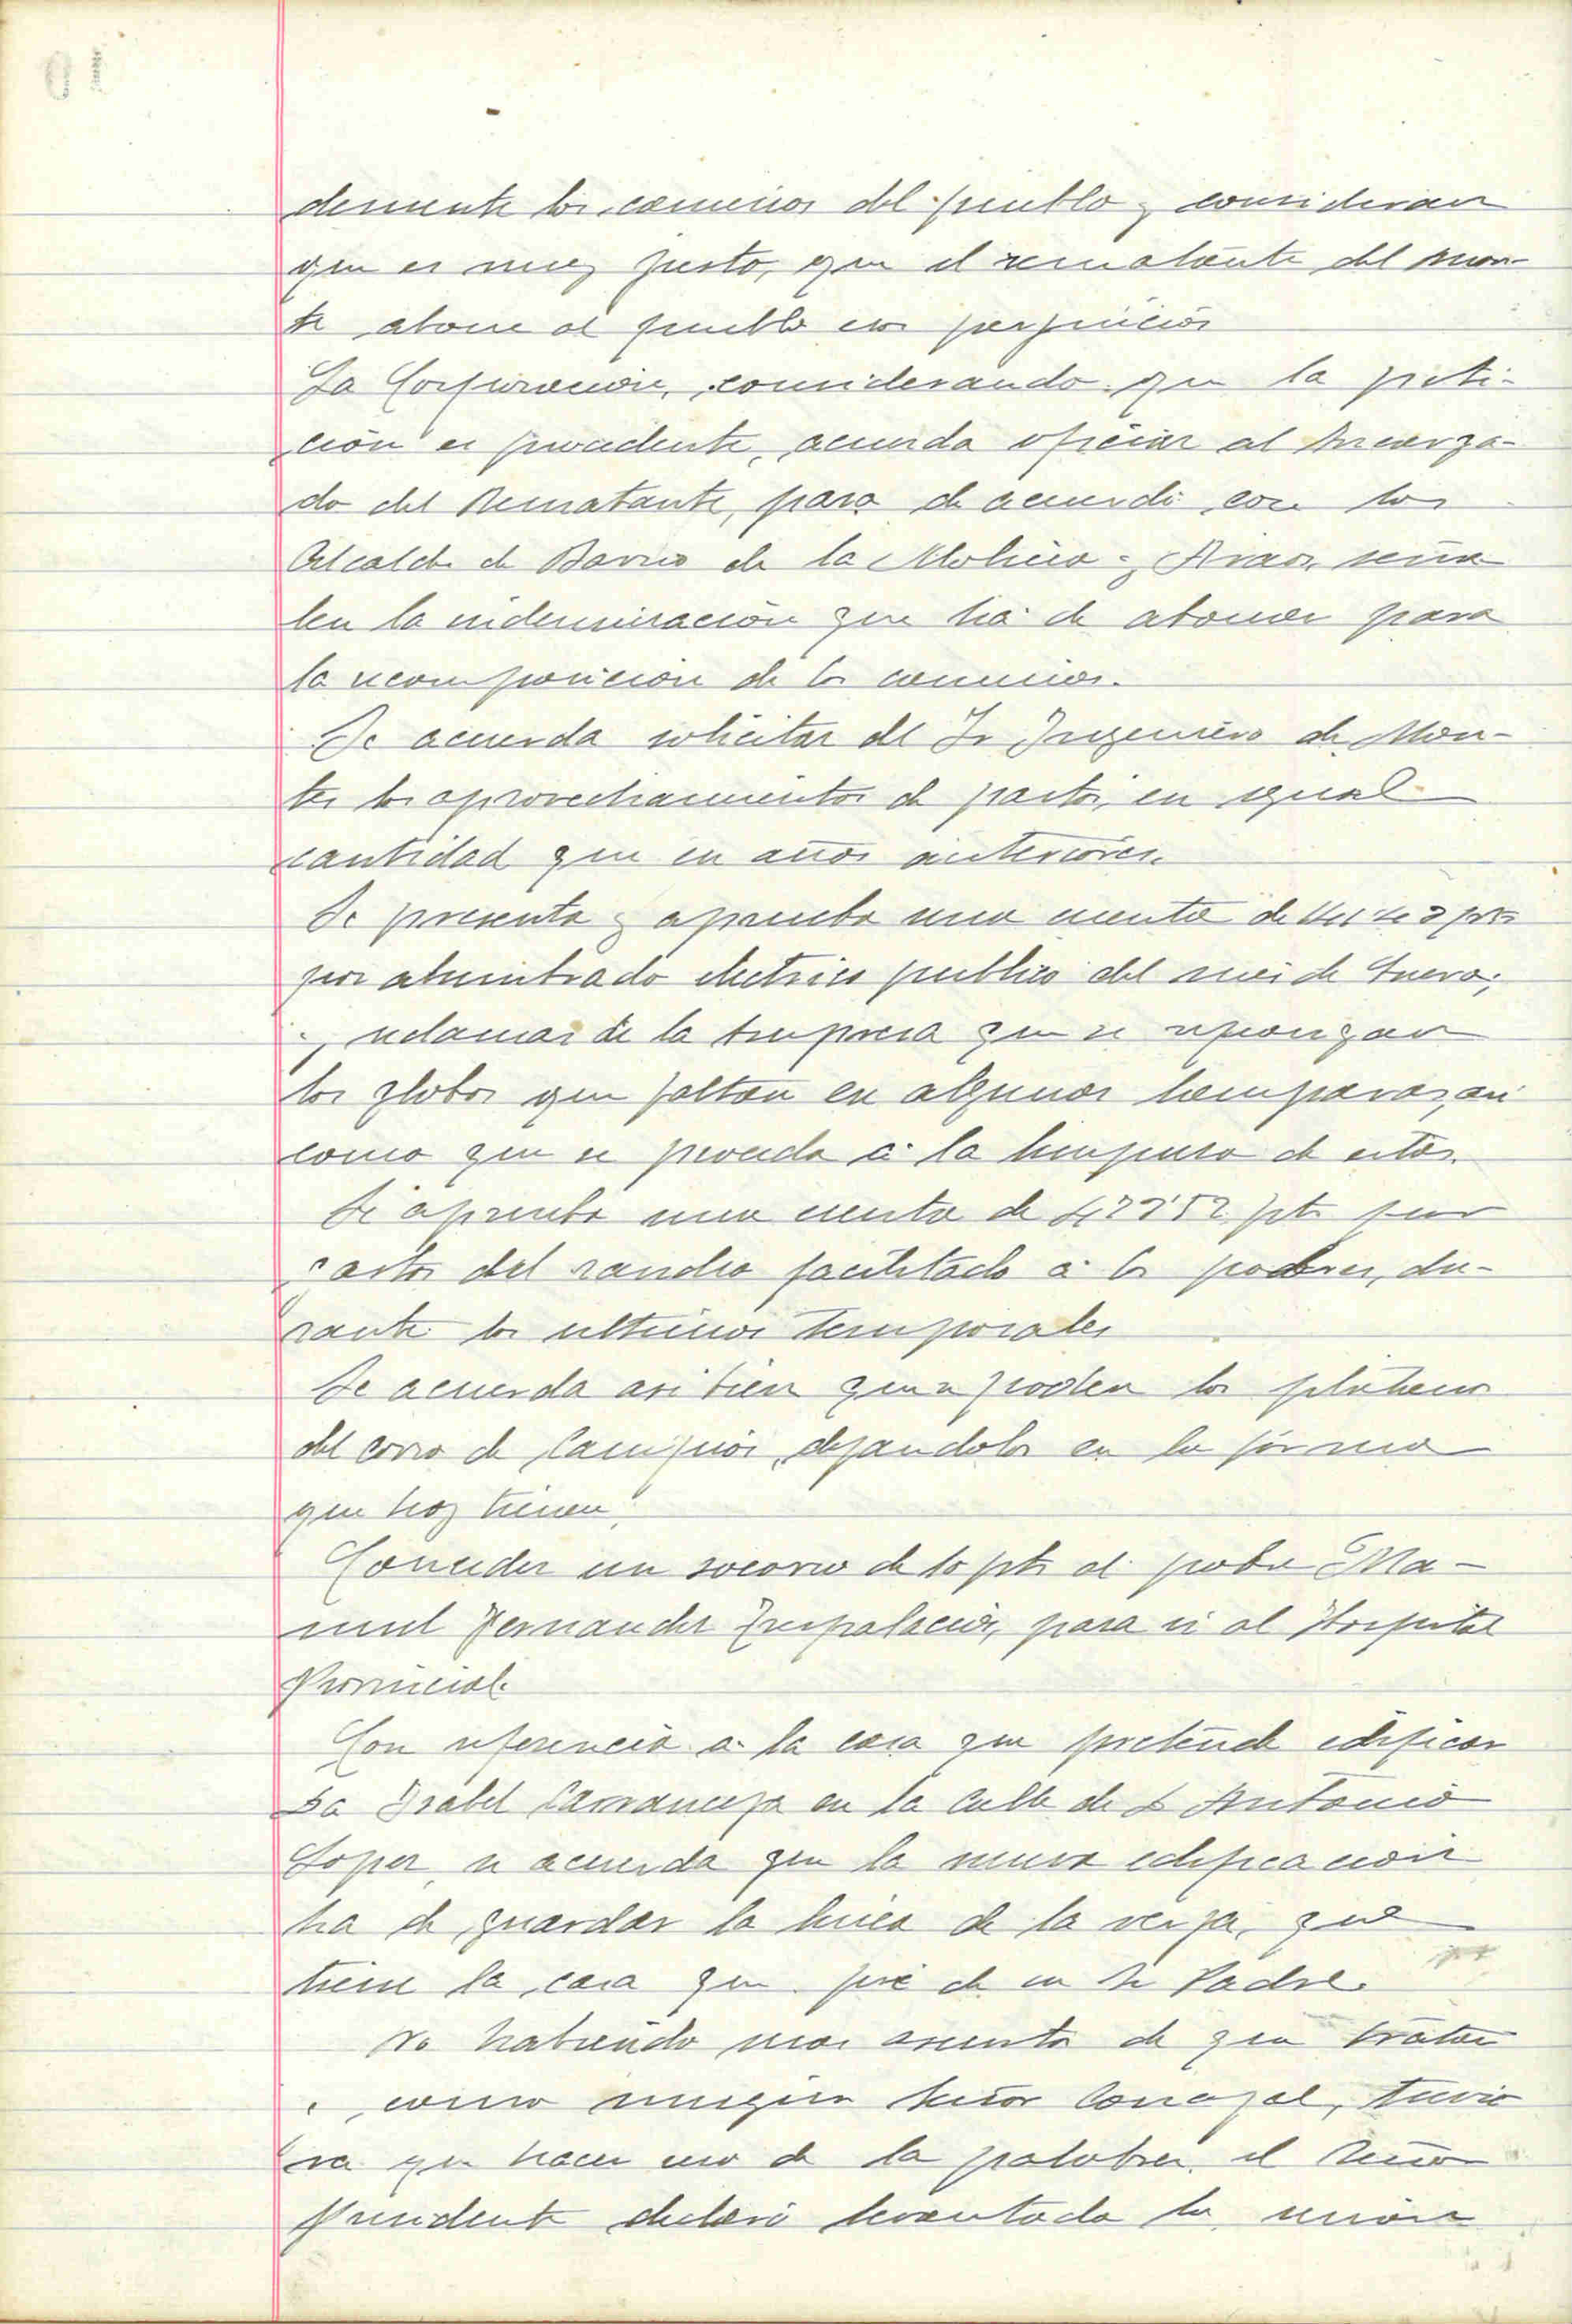 demente los caminos del pueblo y consideran
que es muy justo, que el rematante del mon-
te abone al pueblo los perjuicios
La Corporacion, considerando que la peti-
ción es procedente, acuerda oficiar al Encarga-
do del Rematante, para de acuerdo con los
Alcaldes de Barrio de la Molina y Rivas, seña
len la indemnización que ha de abonar para
la recomposicion de los caminos.
Se acuerda solicitar del Sr Ingeniero de Mon-
tes los aprovechamientos de pastos, en igual
cantidad que en años anteriores.
Se presenta y aprueba una cuenta de pts
por alumbrado electrico publico del mes de Enero,
y reclamar de la Empresa que se repongan
los globos que faltan en algunas lamparas, asi
como que se proceda á la limpieza de estos.
Se aprueba una cuenta de pts por
gastos del rancho facilitado á los pobres, du-
rante los ultimos temporales
Se acuerda asi bien que se poden los plataneros
del corro de Campios, dejandolos en la forma
que hoy tienen.
Conceder un socorro de 10 pts al pobre Ma-
nuel Fernandez Trespalacios, para ir al Hospital
Provincial.
Con referencia a la casa que pretende edificar
Da Isabel Carranceja en la Calle de D Antonio
Lopez, se acuerda que la nueva edificacion
ha de guardar la linea de la verja, que
tiene la casa que fué de su Sr Padre.
No habiendo mas asuntos de que tratar
y como ningun Señor Concejal, tuvie
ra que hacer uso de la palabra, el Señor
Presidente declaró levantada la sesión